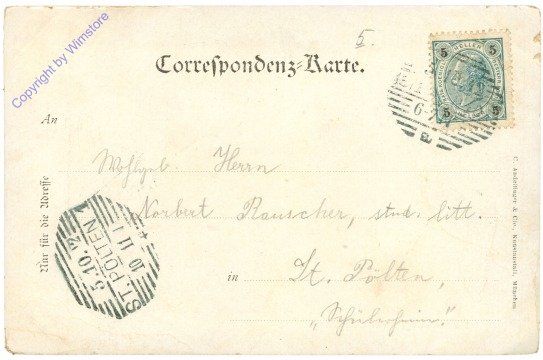 Copyright by Wimstore
5.
Correspondenz-Karte.
5 HELLER 5
5 5
6-7
An
Wohlgeb. Herrn
Norbert Rauscher, stud. litt.
in St. Pölten,
„Schülerheim."
Nur für die Adresse
ST. PÖLTEN 1
5.10.
10 11
C. Andelfinger & Cie., Kunstanstalt, München